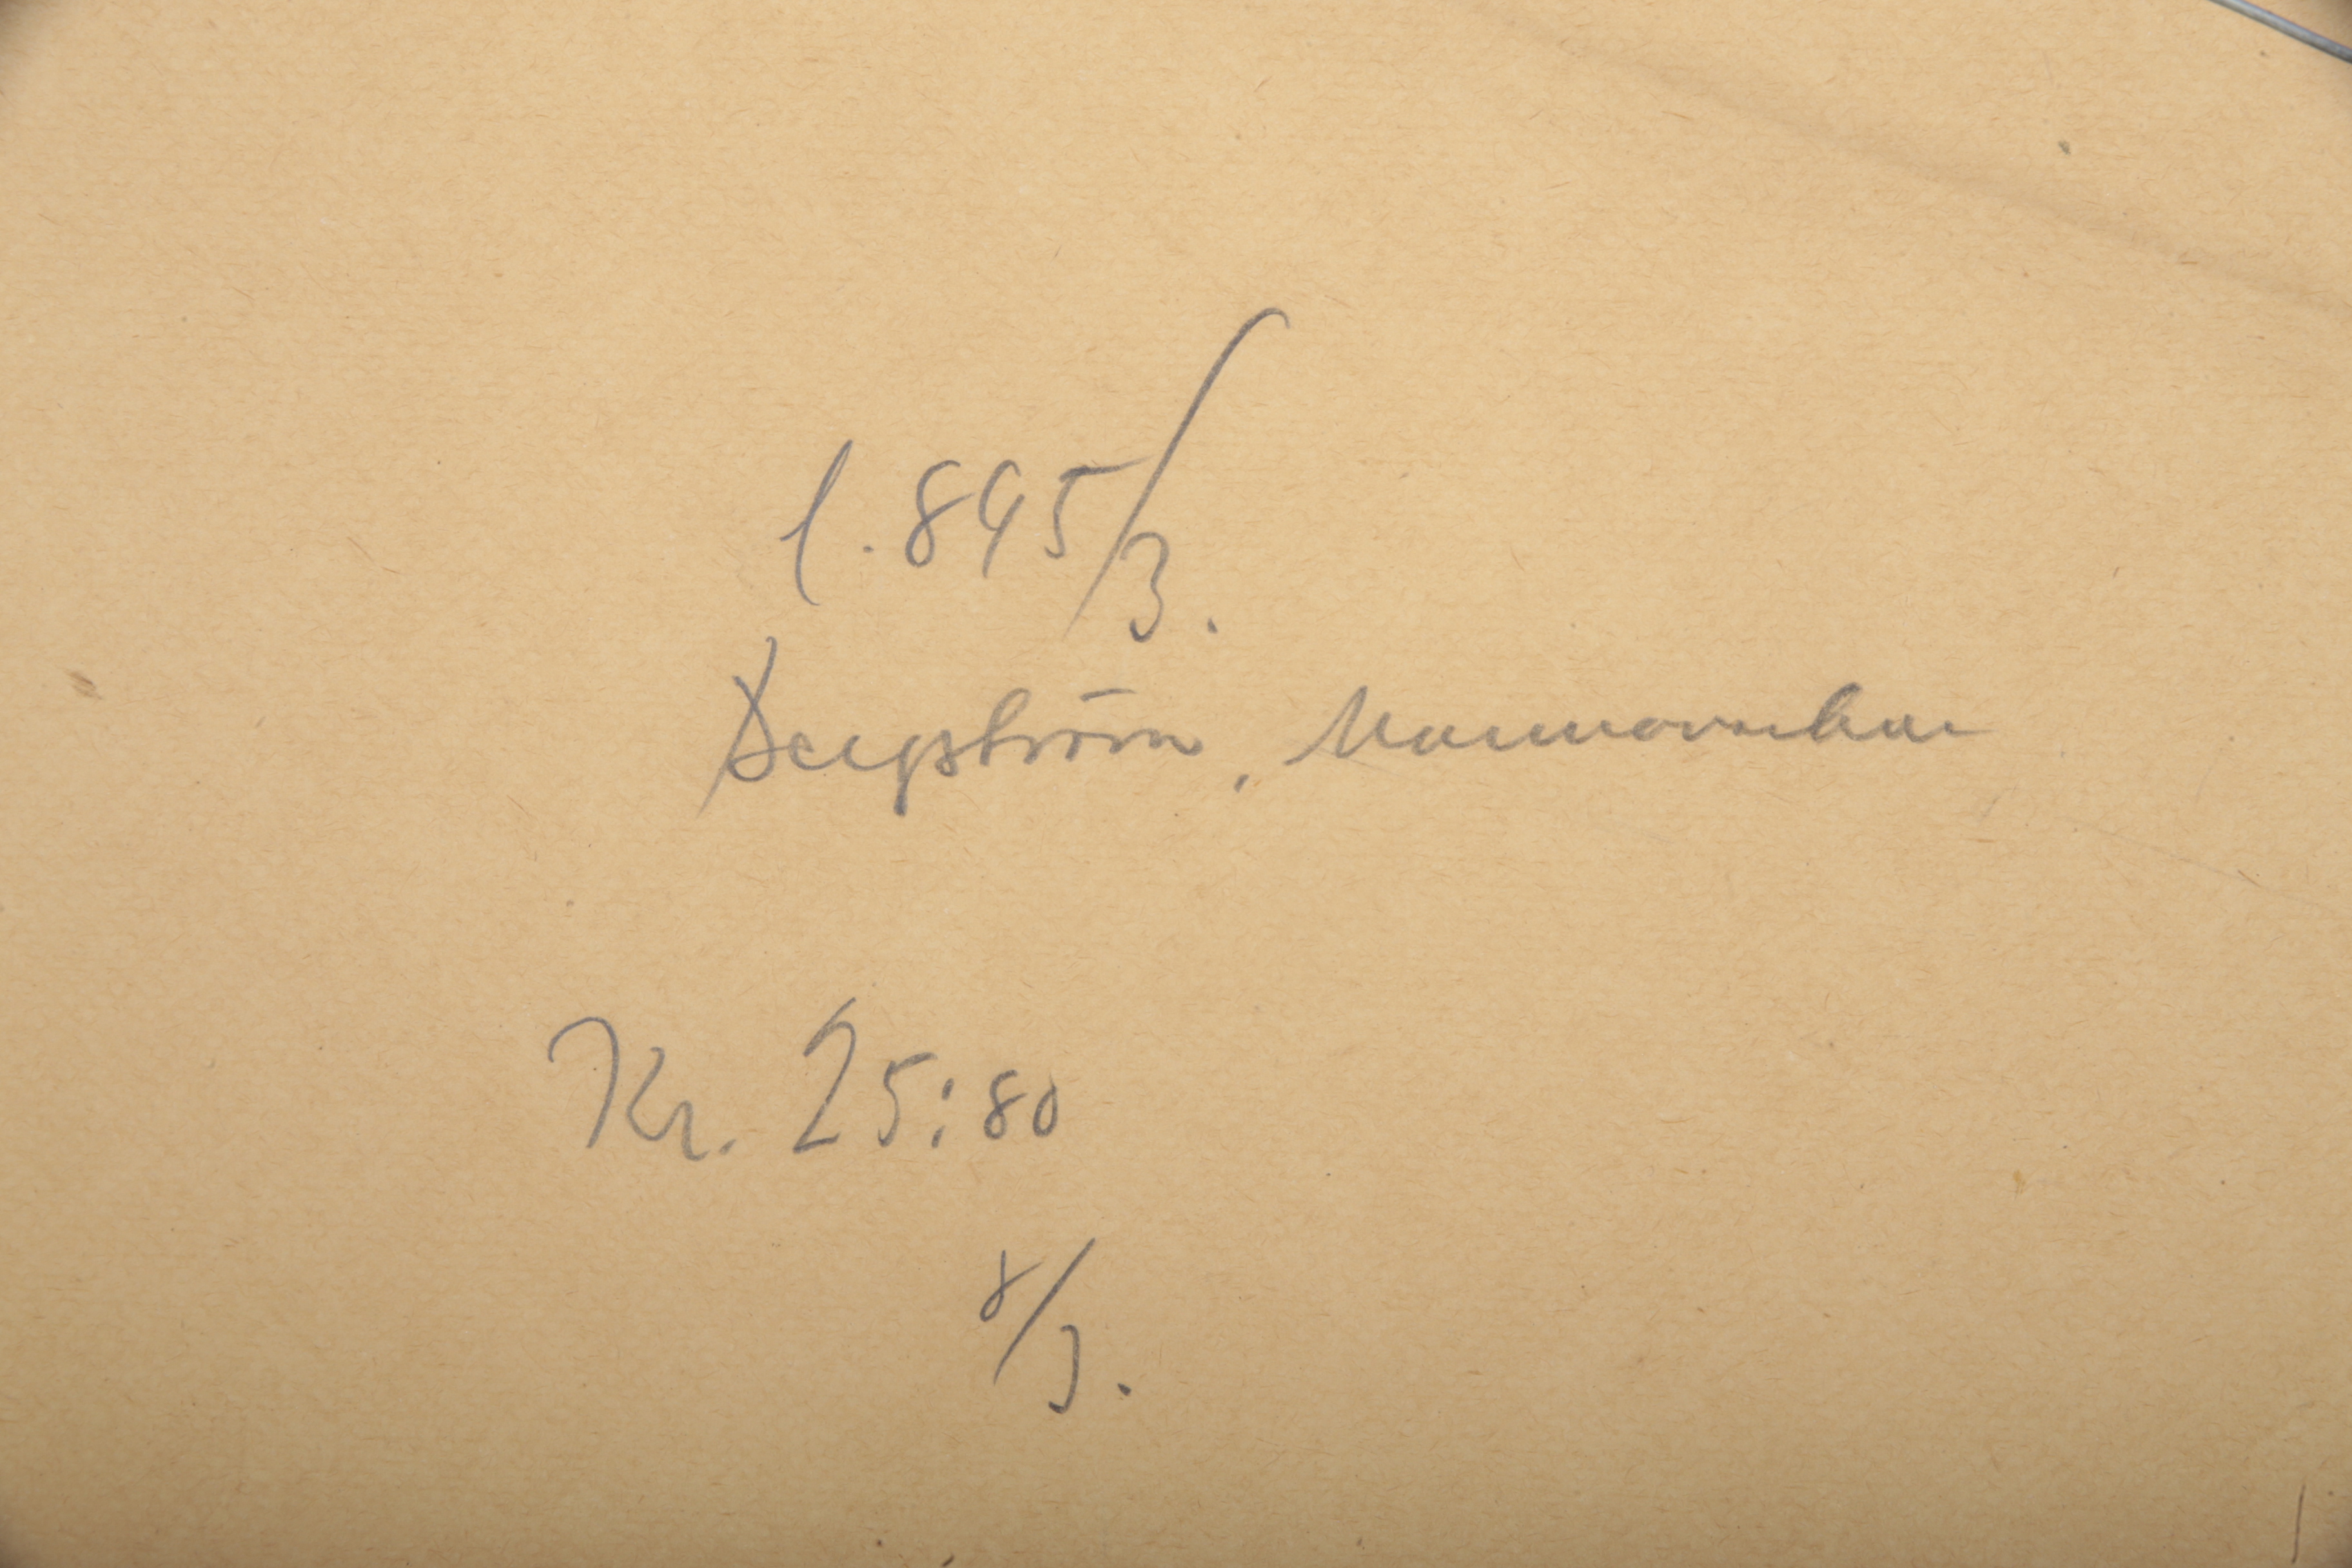 1.895/3.
Bergström,
Kr. 25:80
8/3.